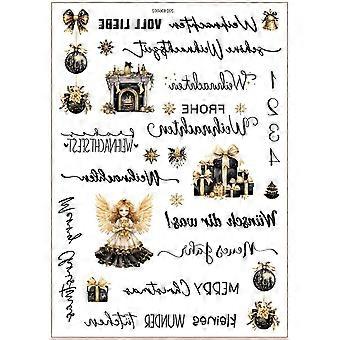 Weihnachten VOLL LIEBE
schöne Weihnachtszeit
Weihnachten
1
2
3
4
FROHE
Weihnachten
WEIHNACHTSFEST
Weihnachten
Wünsch dir was!
Neues Jahr
Merry Christmas
MERRY Christmas
kleines WUNDER tütchen